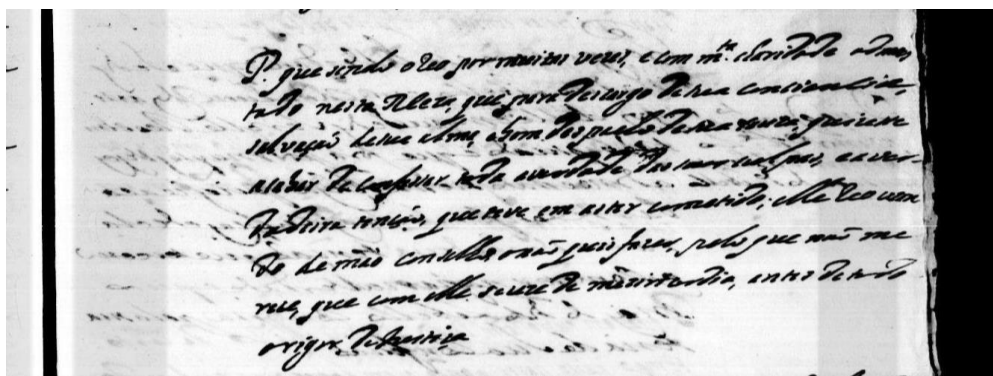 P. que sendo o Reo por muitas vezes, e com mta. charidade admoes
tado nesta Meza, que para descargo de sua consciencia,
salvação de sua Alma, e bom despacho de sua causa, quizesse
acabar de confessar toda a verdade das suas culpas, e a ver-
dadeira tenção, que teve em as ter comettido; elle Reo uzan
do de mao conselho o não quis fazer, pelo que não me
rece, que com elle se uze de mizericordia, antes de todo
o rigor de Justiça